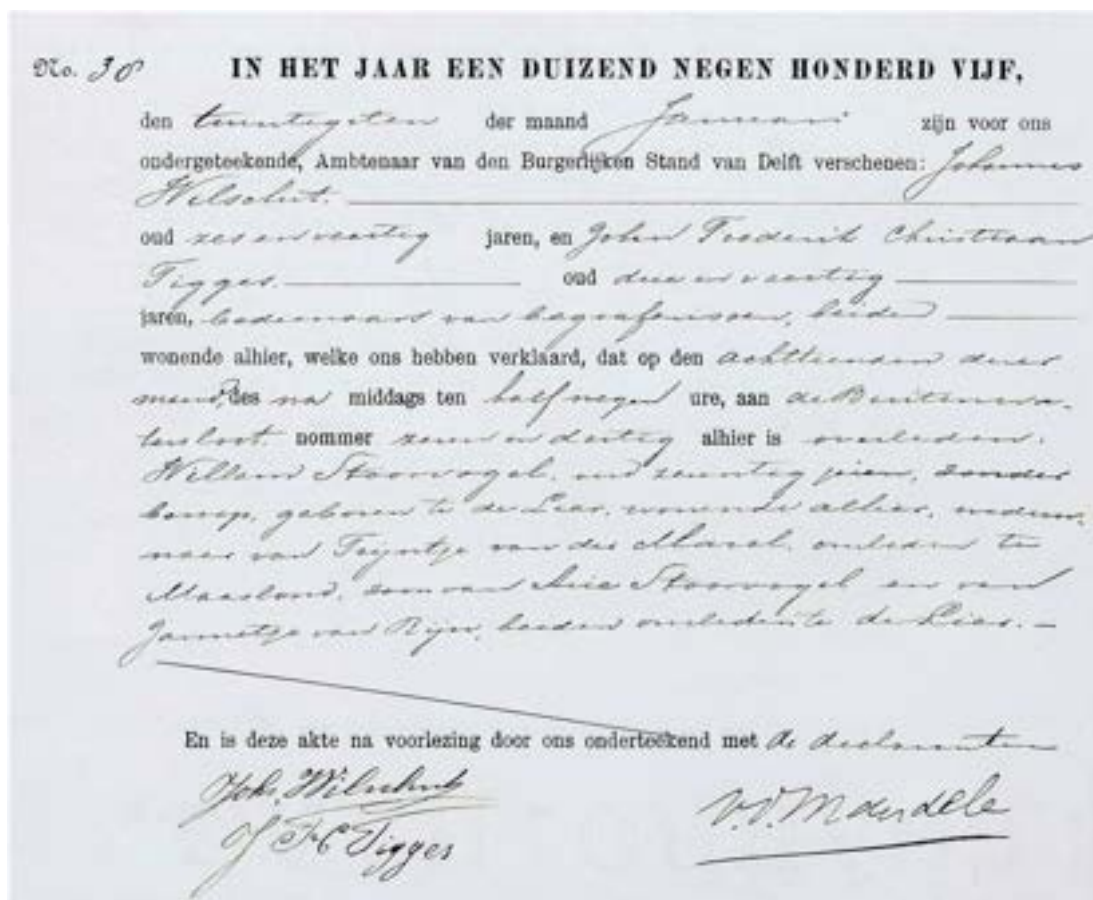 No. 38 IN HET JAAR EEN DUIZEND NEGEN HONDERD VIJF,
den twintigsten der maand Januari zijn voor ons
ondergeteekende, Ambtenaar van den Burgerlijken Stand van Delft verschenen: Johannes
Wilschut.
oud zes en veertig jaren, en John Frederik Christiaan
Tigges. oud drie en veertig
jaren, bedienaars van begrafenissen, beiden
wonende alhier, welke ons hebben verklaard, dat op den achttienden dezer
maand, des na middags ten half negen ure, aan de Buitenwa-
tersloot nommer zeven en dertig alhier is overleden:
Willem Stoorvogel, oud zeventig jaren, zonder
beroep, geboren te de Lier, wonende alhier, weduw-
naar van Trijntje van der Marel, overleden te
Maasland, zoon van Arie Stoorvogel en van
Jannetje van Rijn, beiden overleden te de Lier.
En is deze akte na voorlezing door ons onderteekend met de declaranten
Johs. Wilschut
J F C Tigges